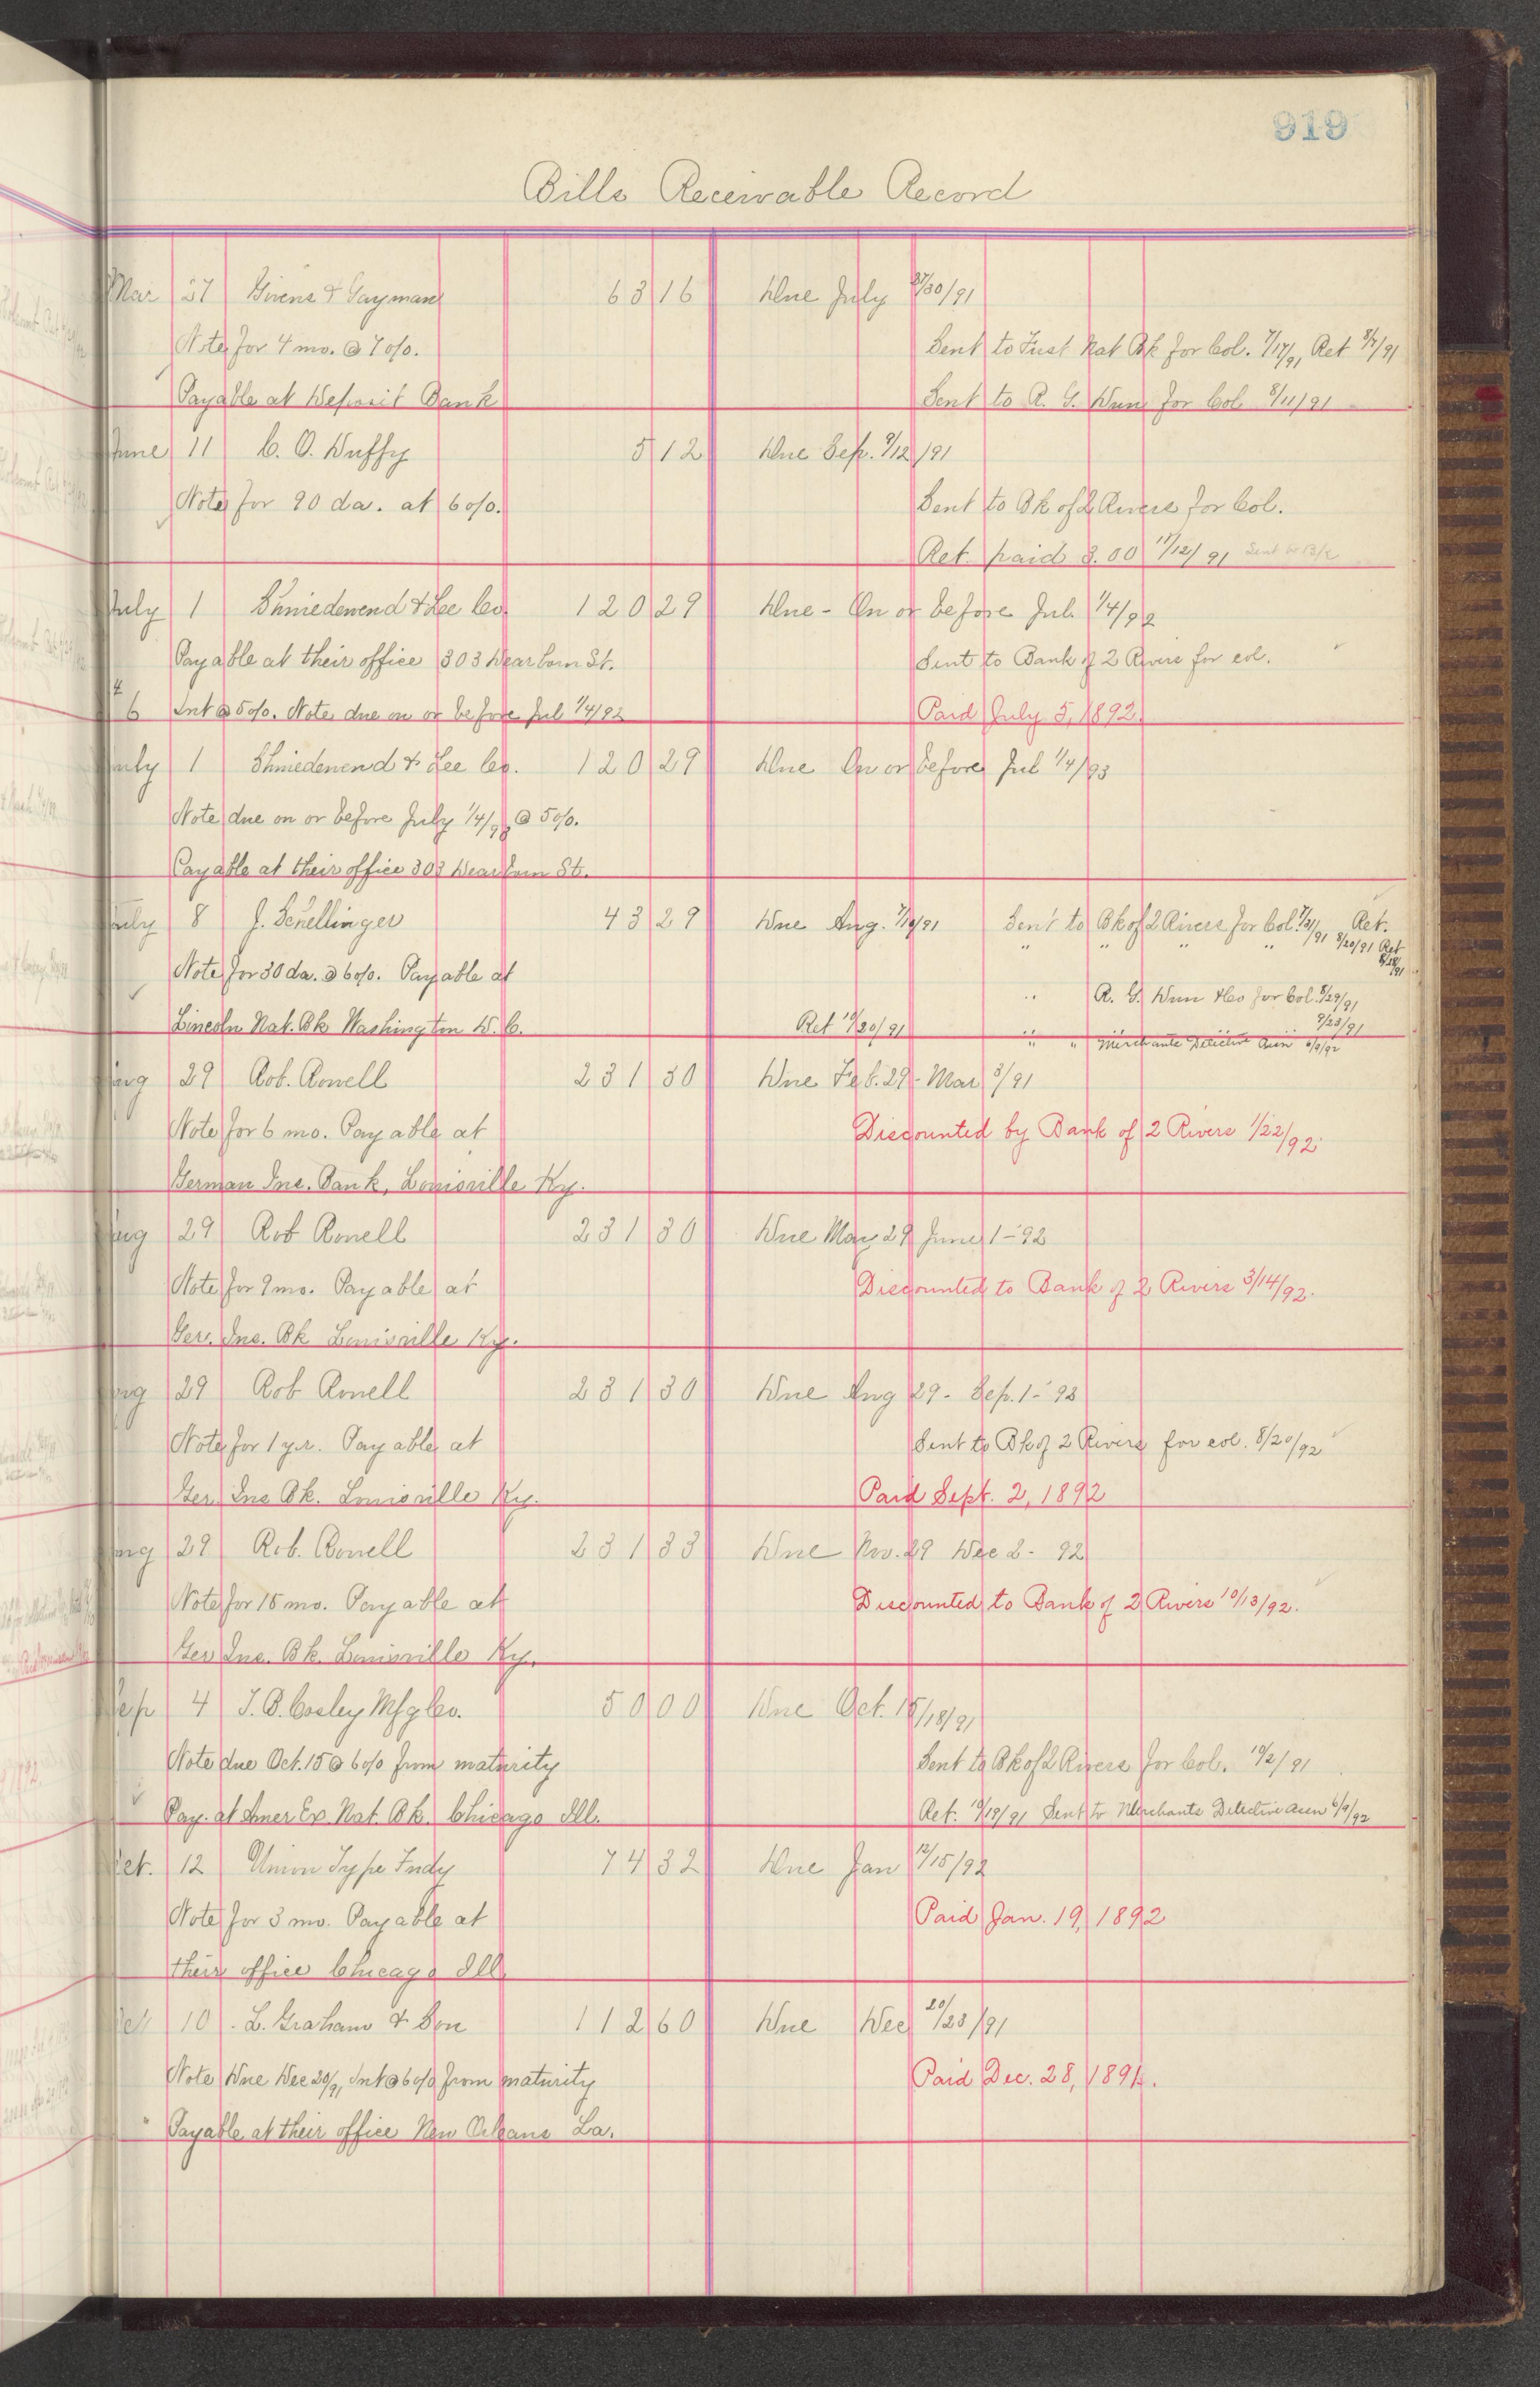 919
Bills Receivable Record
Mar 27 Givens & Gayman 63 16 Due July 27/30/91
Note for 4 mo. @ 7 o/o. Sent to Just Nat Bk for Col. 7/17/91 Ret 8/7/91
Payable at Deposit Bank Sent to R. G. Dun for Col 8/11/91
June 11 C. O. Duffy 5 12 Due Sep. 9/12/91
Note for 90 da. at 6 o/o. Sent to Bk of 2 Rivers for Col.
Ret. paid 3.00 11/12/91
July 1 Shniedewend & Lee Co. 120 29 Due - On or before Jul. 1/4/92
Payable at their office 303 Dearborn St. Sent to Bank of 2 Rivers for col.
Int @ 5 o/o. Note due on or before Jul 1/4/92 Paid July 5, 1892.
July 1 Shniedewend & Lee Co. 120 29 Due On or before Jul 1/4/93
Note due on or before July 1/4/93 @ 5 o/o.
Payable at their office 303 Dearborn St.
July 8 J. Schellinger 43 29 Due Aug. 7/10/91 Sent to Bk of 2 Rivers for Col. 7/31/91 Ret.
" " " " 8/20/91 Ret 8/28/91
Note for 30 da. @ 6 o/o. Payable at
" R. G. Dun & Co for Col. 8/29/91
Lincoln Nat. Bk Washington D. C. Ret 10/20/91 " " " 9/23/91
" " Merchants Detective Assn 6/9/92
Aug 29 Rob. Rowell 231 30 Due Feb. 29 - Mar 3/91
Note for 6 mo. Payable at Discounted by Bank of 2 Rivers 1/22/92.
German Ins. Bank, Louisville Ky.
Aug 29 Rob Rowell 231 30 Due May 29 June 1 - 92
Note for 9 mo. Payable at Discounted to Bank of 2 Rivers 3/14/92.
Ger. Ins. Bk Louisville Ky.
Aug 29 Rob Rowell 231 30 Due Aug 29 - Sep. 1 - 93
Note for 1 yr. Payable at Sent to Bk of 2 Rivers for col. 8/20/92
Ger. Ins Bk. Louisville Ky. Paid Sept. 2, 1892
Aug 29 Rob. Rowell 231 33 Due Nov. 29 Dec 2 - 92
Note for 15 mo. Payable at Discounted to Bank of 2 Rivers 10/13/92.
Ger Ins. Bk. Louisville Ky.
Sep 4 J. B. Cosley Mfg Co. 50 00 Due Oct. 15/18/91
Note due Oct. 15 @ 6 o/o from maturity Sent to Bk of 2 Rivers for Col. 10/2/91
Pay. at Amer Ex. Nat. Bk. Chicago Ill. Ret. 10/19/91 Sent to Merchants Detective Assn 6/9/92
Oct. 12 Union Type Fndy 74 32 Due Jan 12/15/92
Note for 3 mo. Payable at Paid Jan. 19, 1892
their office Chicago Ill.
Oct 10 L. Graham & Son 112 60 Due Dec 20/23/91
Note Due Dec 20/91 Int @ 6 o/o from maturity Paid Dec. 28, 1891.
Payable at their office New Orleans La.